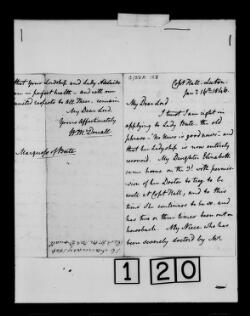 that Your Lordship and Lady Adelaide
are in perfect health – and with our
united respects to all three. remain
My Dear Lord
Yours Affectionately
Wm Dowall
Marquess of Bute
Copt Hall – Luton
Jan 7 14th 1846.
My Dear Lord
I trust I am right in
applying to Lady Bute the old
phrase – "No News is good news" – and
that her Ladyship is now entirely
recovered. My Daughter Elizabeth
came home on the 3d with permis-
sion of her Doctor to try to be
well at Copt Hall, and to this
time she continues to be so. and
has two or three times been out on
horseback. My Niece who has
been severely doctored by Mr
120